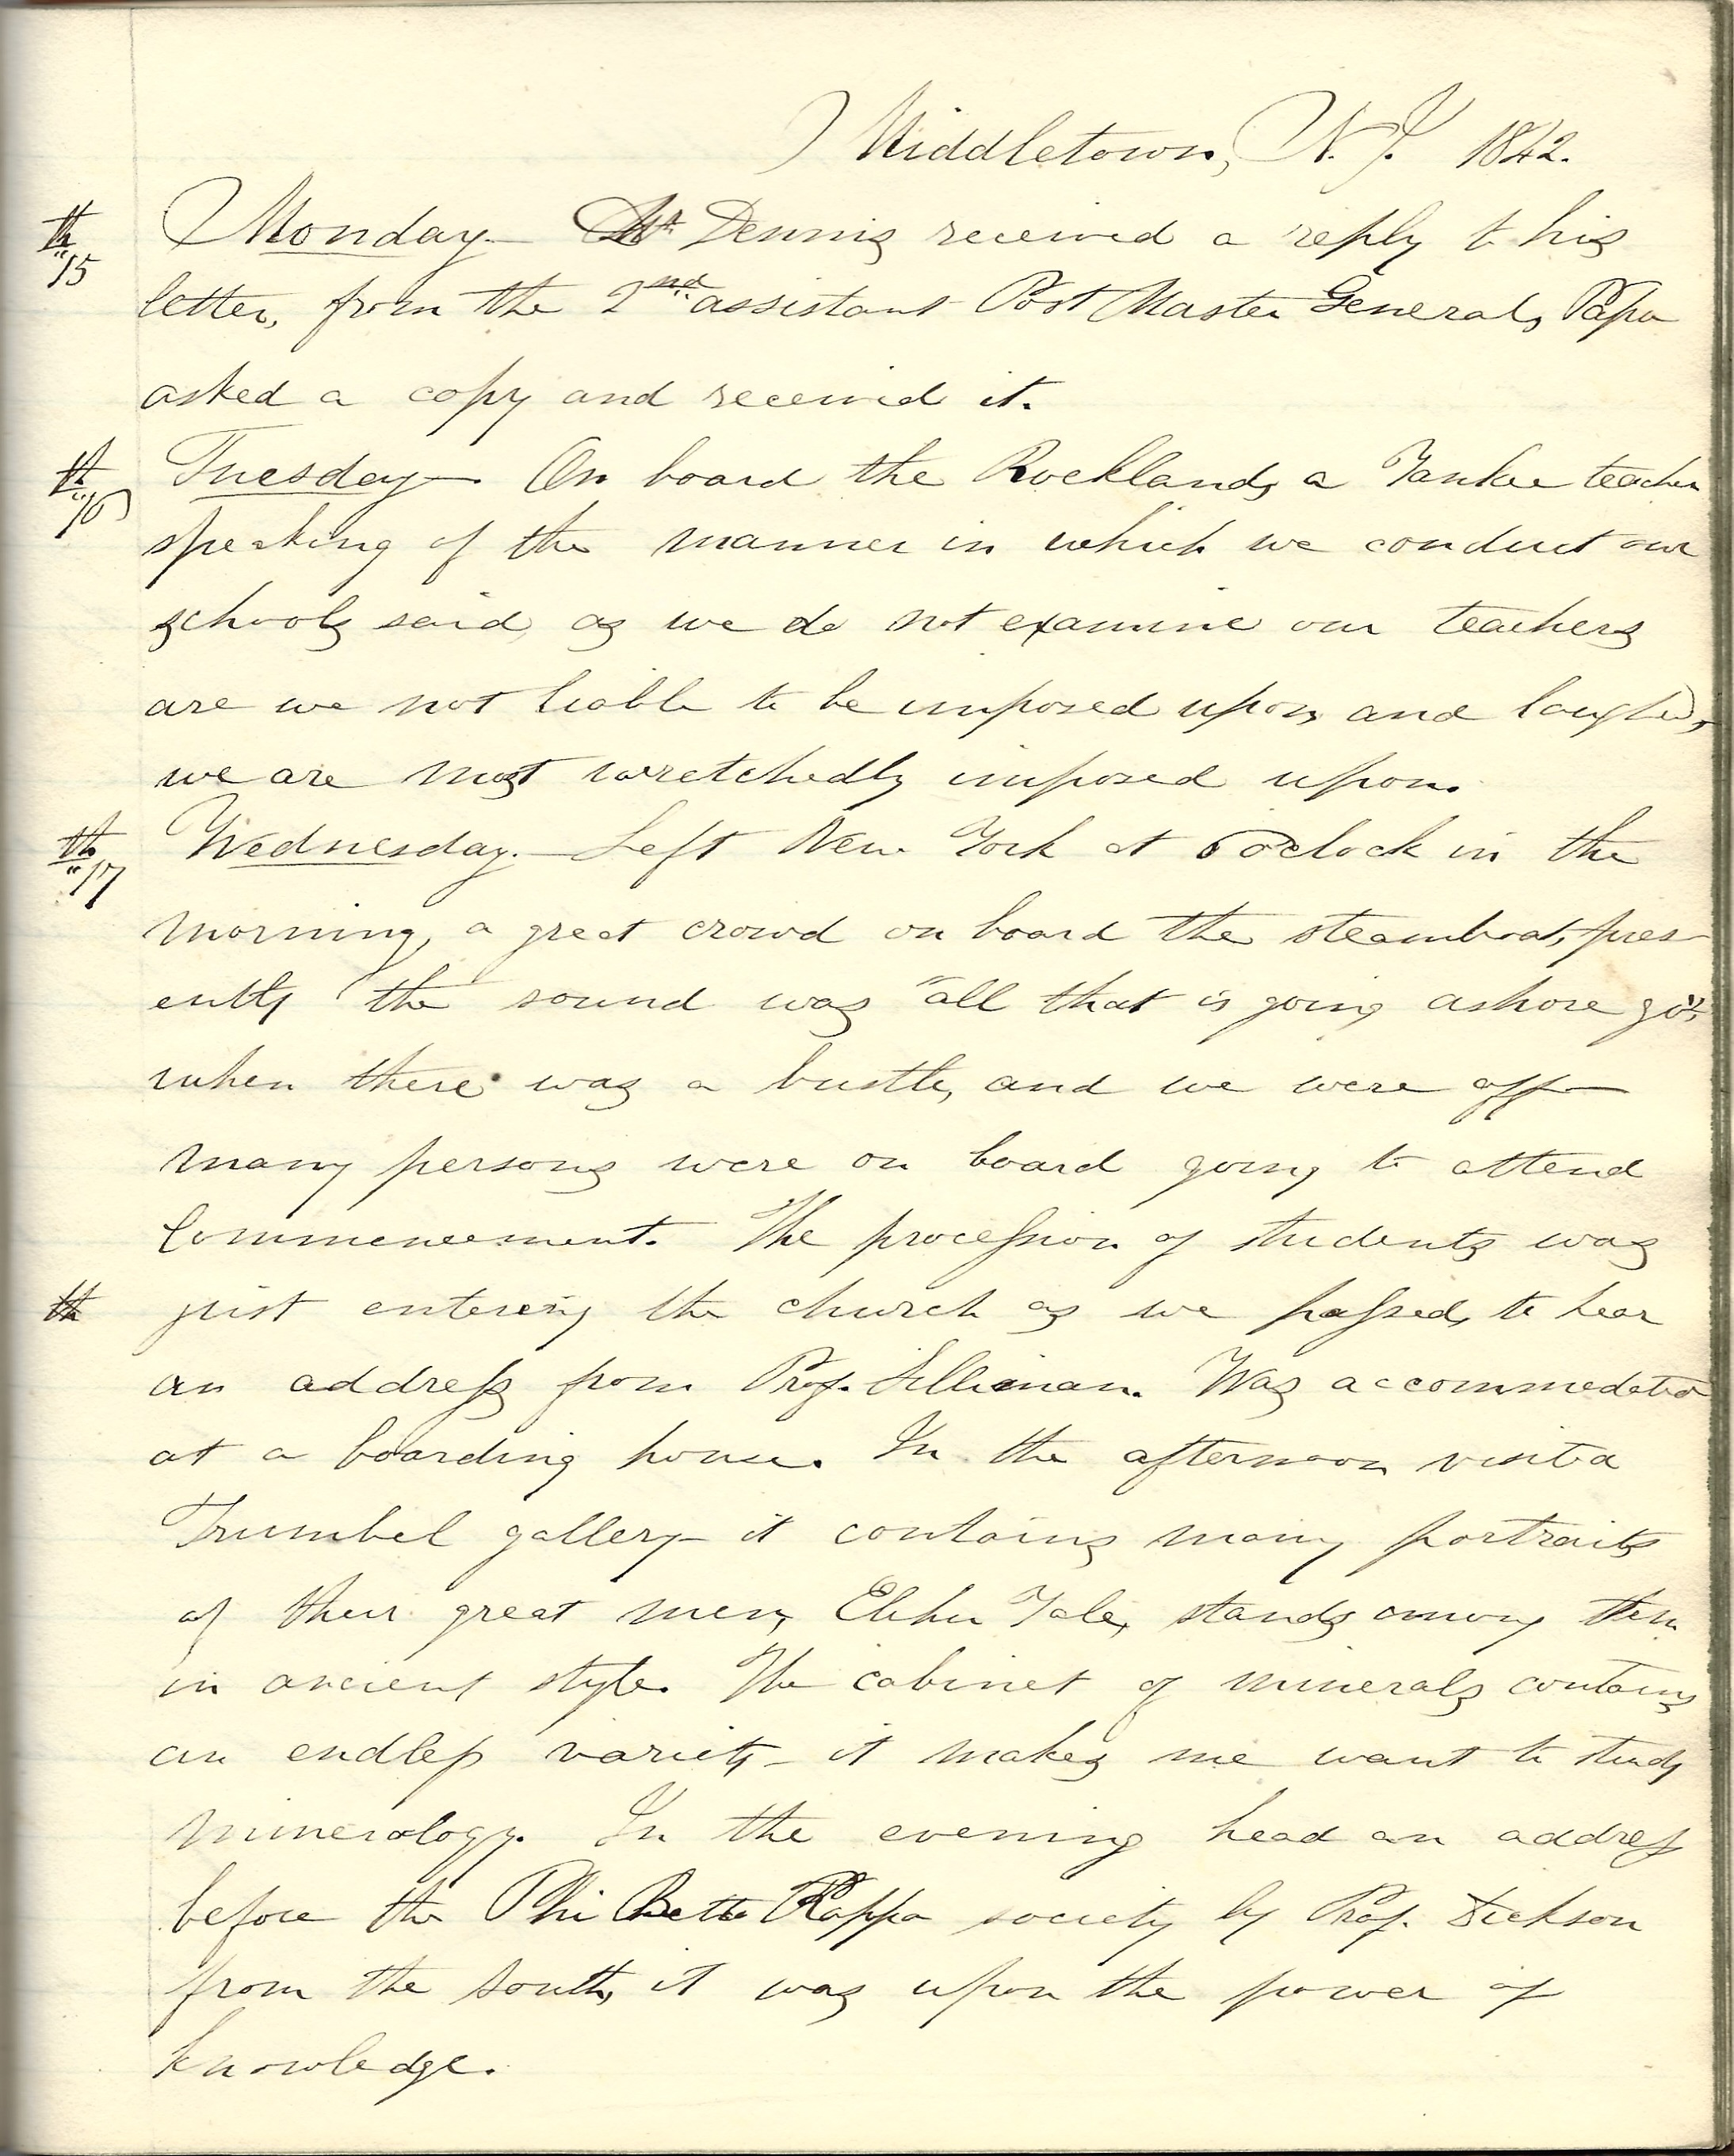 Middletown, N.J. 1842.
th
"15
Monday— Mr Dennis received a reply to his
letter, from the 2nd assistant Post Master General, Papa
asked a copy and received it.
th
"16
Tuesday—. On board the Rockland, a Yankee teacher
speaking of the manner in which we conduct our
schools said, as we do not examine our teachers
are we not liable to be imposed upon, and laughed,
we are most wretchedly imposed upon.
th
"17
Wednesday.— Left New York at 6 oclock in the
morning, a great crowd on board the steamboat, pres-
ently the sound was "all that is going ashore go",
when there was a bustle, and we were off—
many persons were on board going to attend
Commencement. The procession of students was
th
just entering the church as we passed, to hear
an address from Prof. Silliman. Was accommodated
at a boarding house. In the afternoon visited
Trumbel gallery— it contains many portraits
of their great men, Elihu Yale, stands among them
in ancient style. The cabinet of minerals contains
an endless variety— it makes me want to study
minerology. In the evening head an address
before the Phi Betta Kappa society by Prof. Dickson
from the south, it was upon the power of
knowledge.